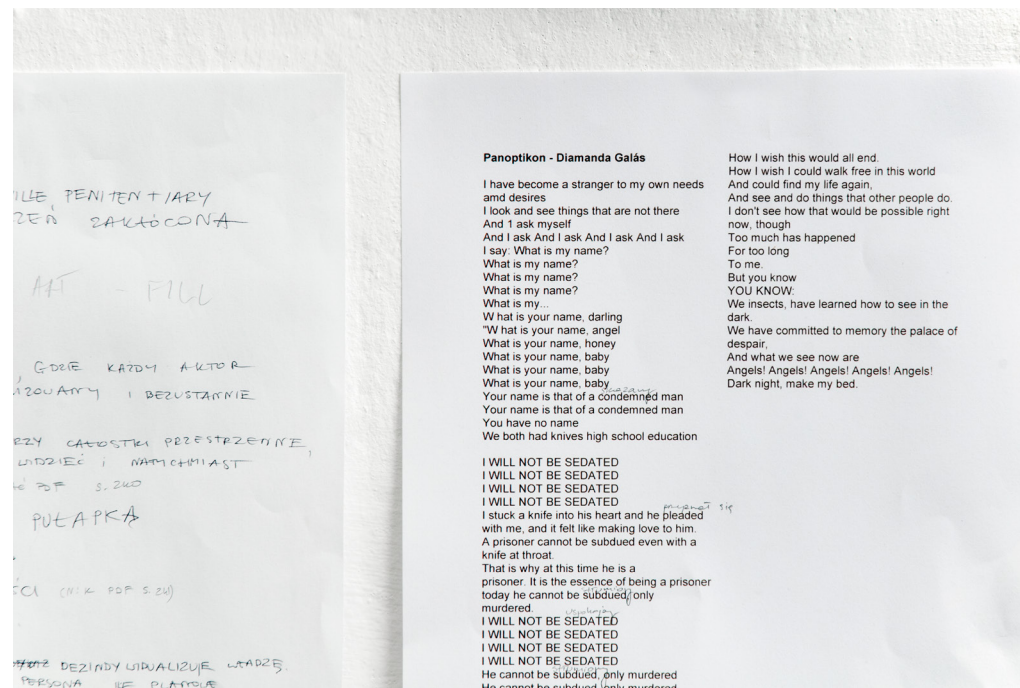 ILLE PENITENTIARY
ZEŃ ZAKŁÓCONA
ART - FILL
GDZIE KAŻDY AKTOR
IZOWANY I BEZUSTANNIE
RZY CAŁOSTKI PRZESTRZENNE,
WIDZIEĆ I NATYCHMIAST
PDF S. 240
PUŁAPKĄ
ŚCI (N:K PDF S. 241)
DEZINDYWIDUALIZUJE WŁADZĘ.
PERSONA
Panoptikon - Diamanda Galás
I have become a stranger to my own needs
amd desires
I look and see things that are not there
And 1 ask myself
And I ask And I ask And I ask And I ask
I say: What is my name?
What is my name?
What is my name?
What is my name?
What is my...
W hat is your name, darling
"W hat is your name, angel
What is your name, honey
What is your name, baby
What is your name, baby
What is your name, baby
skazany
Your name is that of a condemned man
Your name is that of a condemned man
You have no name
We both had knives high school education
I WILL NOT BE SEDATED
I WILL NOT BE SEDATED
I WILL NOT BE SEDATED
I WILL NOT BE SEDATED
się
I stuck a knife into his heart and he pleaded
with me, and it felt like making love to him.
A prisoner cannot be subdued even with a
knife at throat.
That is why at this time he is a
prisoner. It is the essence of being a prisoner
today he cannot be subdued, only
murdered.
I WILL NOT BE SEDATED
I WILL NOT BE SEDATED
I WILL NOT BE SEDATED
I WILL NOT BE SEDATED
He cannot be subdued, only murdered
He cannot be subdued, only murdered
How I wish this would all end.
How I wish I could walk free in this world
And could find my life again,
And see and do things that other people do.
I don't see how that would be possible right
now, though
Too much has happened
For too long
To me.
But you know
YOU KNOW:
We insects, have learned how to see in the
dark.
We have committed to memory the palace of
despair,
And what we see now are
Angels! Angels! Angels! Angels! Angels!
Dark night, make my bed.